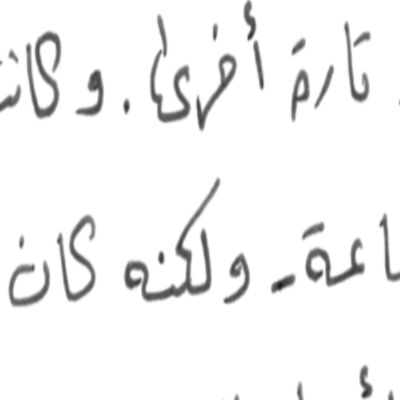 تارة أخرى. و كانت
ـاعة - ولكنه كان